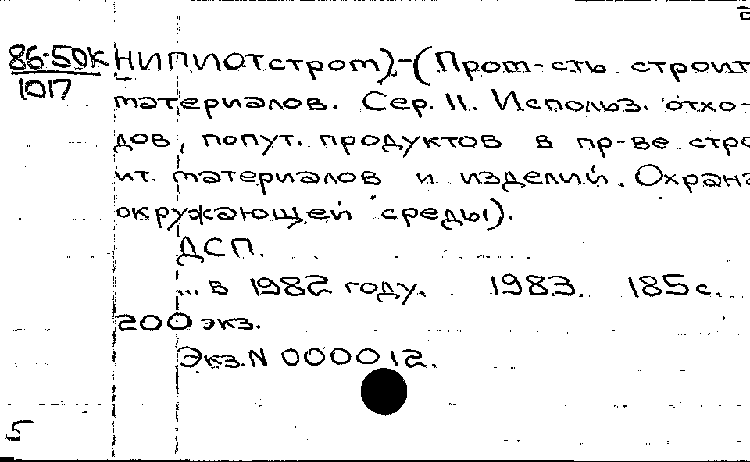 86-50К НИПИОТстром).-(Пром-сть строит.
1017
материалов. Сер. 11. Использ. отхо-
дов, попут. продуктов в пр-ве стро
ит. материалов и изделий. Охрана
окружающей среды).
ДСП.
... в 1982 году. 1983. 185 с.
200 экз.
Экз. N 000012.